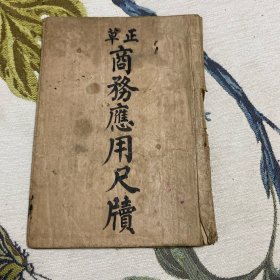 正草
商務應用尺牘